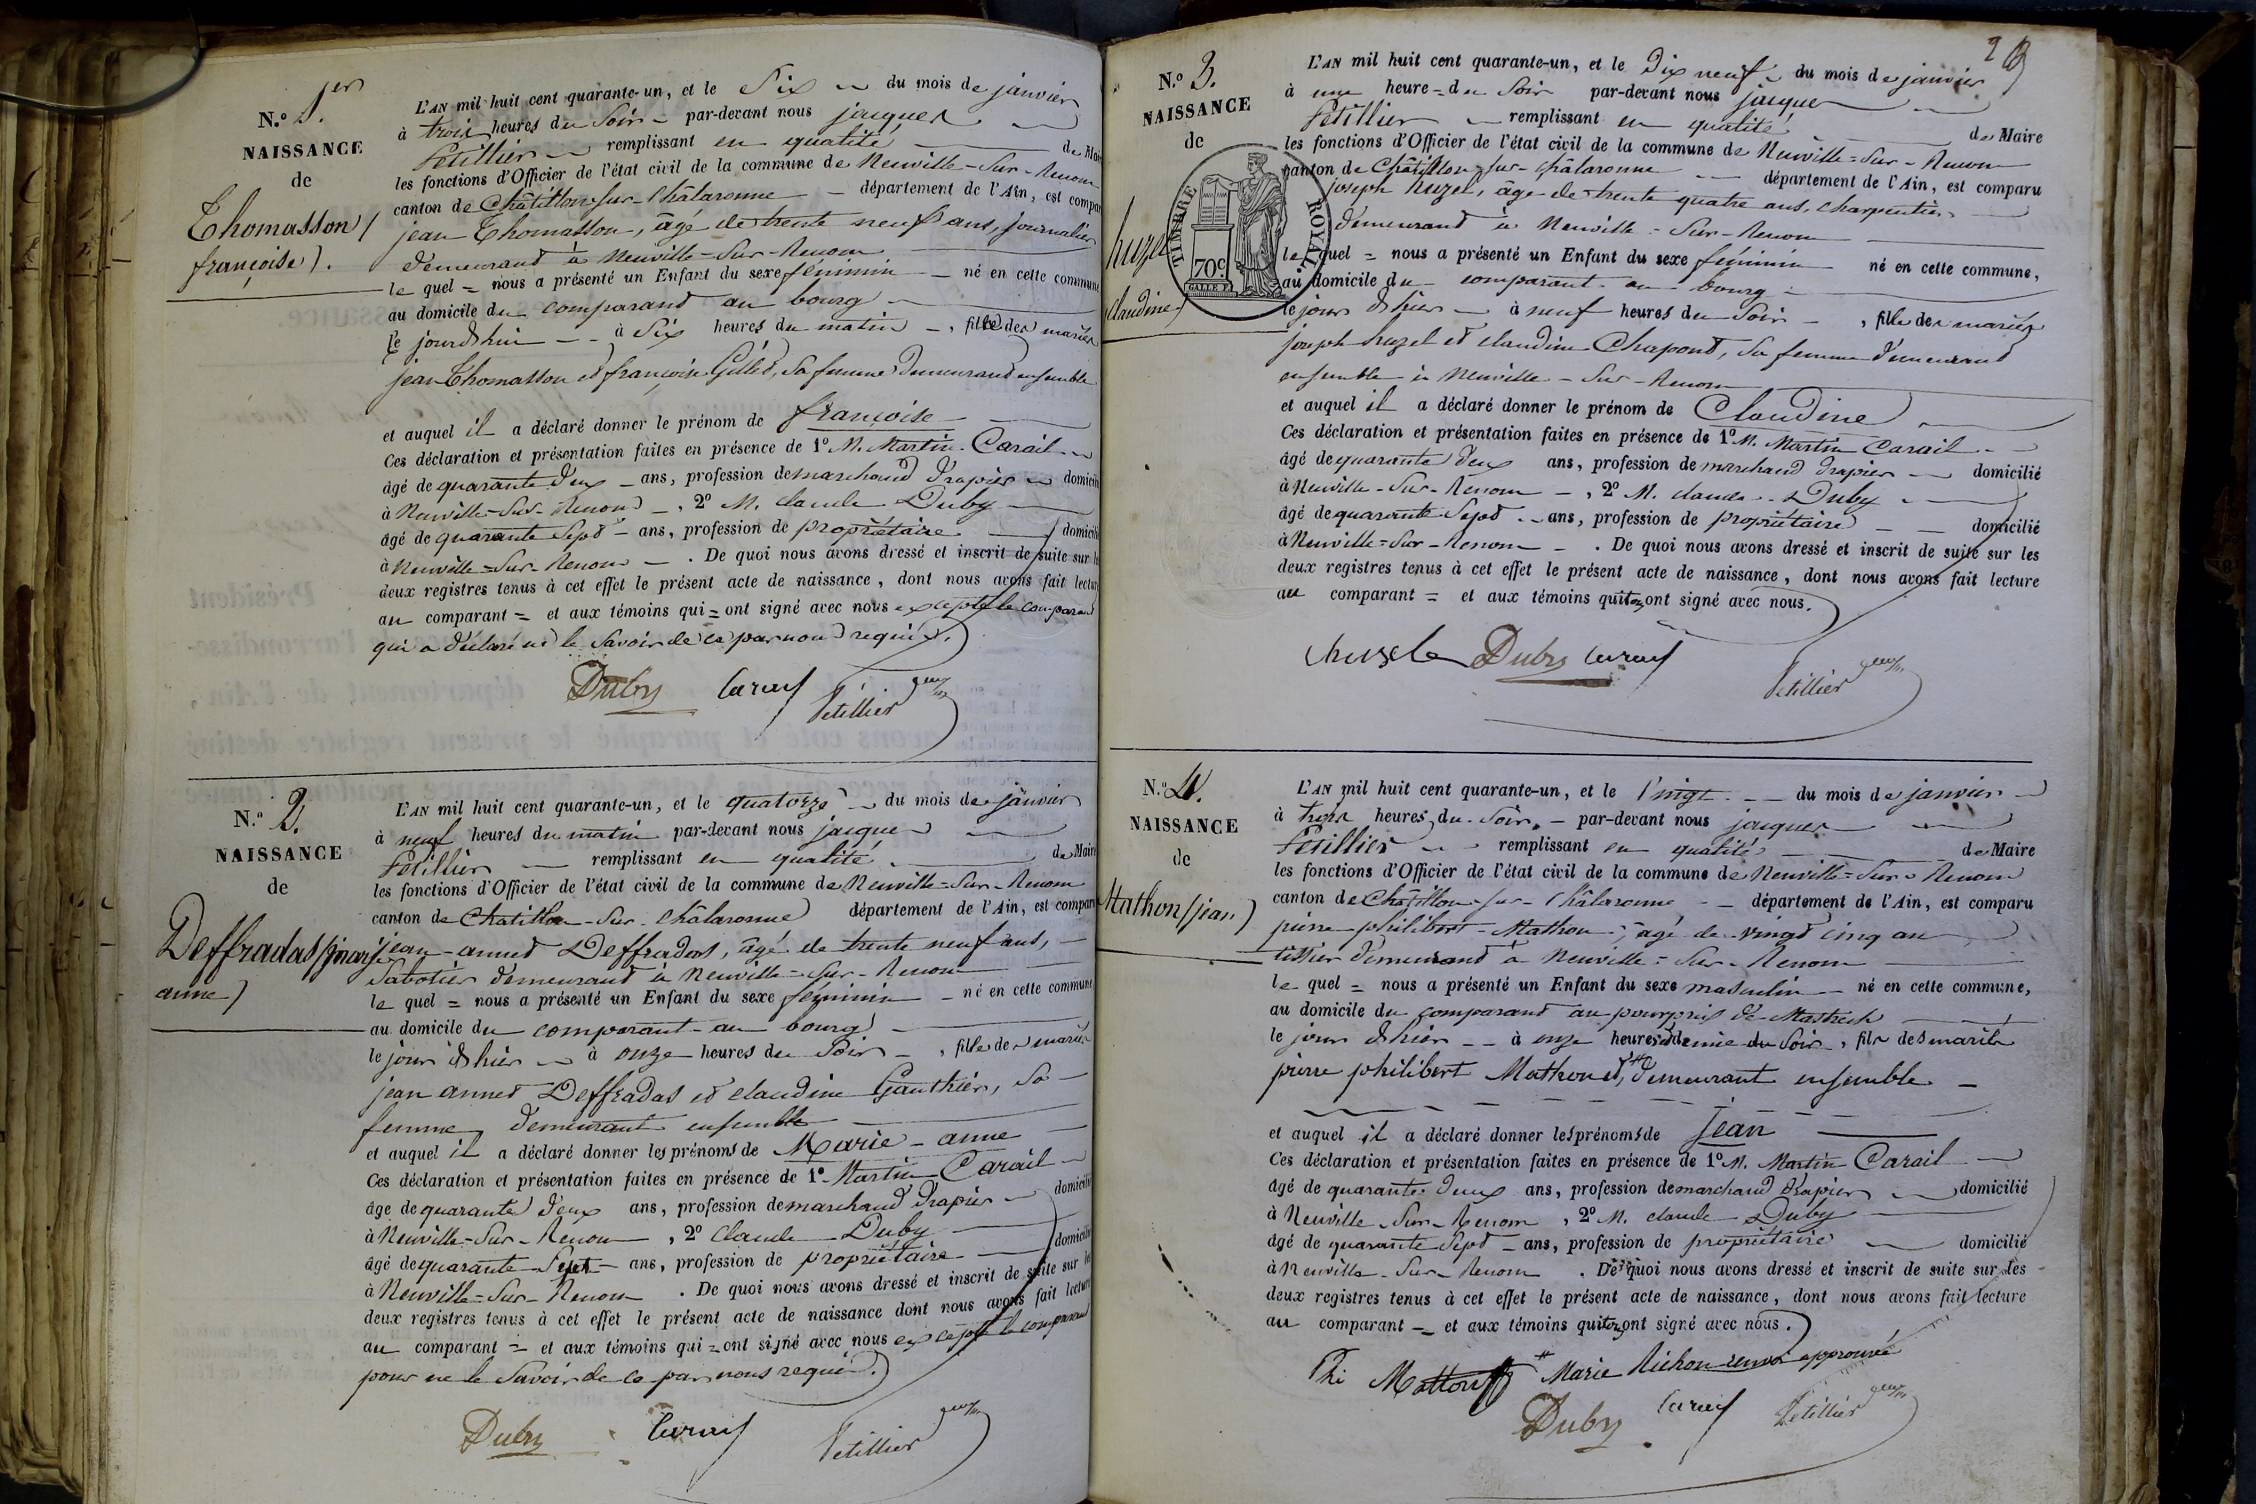 N.º 1.er
NAISSANCE
de
Thomasson (
françoise).
L'AN mil huit cent quarante-un, et le Six du mois de janvier
à trois heures du Soir par-devant nous jacques
Petillier remplissant en qualité de Mai
les fonctions d'Officier de l'état civil de la commune de Neuville-Sur-Renom
canton de Châtillon-sur-Châlaronne département de l'Ain, est compar
jean Thomasson, âgé de trente neuf ans, journalier
demeurand à Neuville-Sur-Renom
le quel = nous a présenté un Enfant du sexe féminin né en cette commune
au domicile du comparand au bourg
le jourd'hui à Six heures du matin, fille des mariés
jean Thomasson et françoise Gillet, sa femme demeurand ensemble
et auquel il a déclaré donner le prénom de françoise
Ces déclaration et présentation faites en présence de 1º M. Martin Carail
âgé de quarante deux ans, profession de marchand drapier domicilié
à Neuville-Sur-Renom, 2º M. claude Duby
âgé de quarante Sept ans, profession de propriétaire domicilié
à Neuville-Sur-Renom. De quoi nous avons dressé et inscrit de suite sur le
deux registres tenus à cet effet le présent acte de naissance, dont nous avons fait lectur
au comparant = et aux témoins qui = ont signé avec nous excepté le comparand
qui a déclaré ne le Savoir de ce par nous requis.
Duby Carail Petillier
N.º 2.
NAISSANCE
de
Deffradas (marie
anne)
L'AN mil huit cent quarante-un, et le quatorze du mois de janvier
à neuf heures du matin par-devant nous jacques
Petillier remplissant en qualité de Mair
les fonctions d'Officier de l'état civil de la commune de Neuville-Sur-Renom
canton de Chatillon-Sur-Châlaronne département de l'Ain, est compar
jean-annet Deffradas, âgé de trente neuf ans,
Sabotier demeurand à Neuville-Sur-Renom
le quel = nous a présenté un Enfant du sexe féminin né en cette commune
au domicile du comparant au bourg
le jour d'hier à onze heures du Soir, fille des mariés
jean annet Deffradas et claudine Gauthier, Sa
femme, demeurant ensemble
et auquel il a déclaré donner les prénoms de Marie-anne
Ces déclaration et présentation faites en présence de 1º Martin Carail
âge de quarante deux ans, profession de marchand drapier domicilié
à Neuville-Sur-Renom, 2º Claude Duby
âgé de quarante Sept ans, profession de propriétaire domicilié
à Neuville-Sur-Renom. De quoi nous avons dressé et inscrit de suite sur le
deux registres tenus à cet effet le présent acte de naissance dont nous avons fait lecture
au comparant = et aux témoins qui = ont signé avec nous excepté le comparand
pour ne le Savoir de ce par nous requis.
Duby Carail Petillier
2
N.º 3.
NAISSANCE
de
huzel
(claudine)
TIMBRE ROYAL
70c
L'AN mil huit cent quarante-un, et le Dix neuf du mois de janvier
à une heure = du Soir par-devant nous jacques
Petillier remplissant en qualité de Maire
les fonctions d'Officier de l'état civil de la commune de Neuville-Sur-Renom
canton de Châtillon-sur-Châlaronne département de l'Ain, est comparu
joseph huzel, âgé de trente quatre ans, charpentier
demeurand à Neuville-Sur-Renom
le quel = nous a présenté un Enfant du sexe féminin né en cette commune,
au domicile du comparant au bourg
le jour d'hier à neuf heures du Soir, fille des mariés
joseph huzel et claudine Chapond, sa femme demeurand
ensemble à Neuville-Sur-Renom
et auquel il a déclaré donner le prénom de Claudine
Ces déclaration et présentation faites en présence de 1º M. Martin Carail
âgé de quarante deux ans, profession de marchand drapier domicilié
à Neuville-Sur-Renom, 2º M. claude Duby
âgé de quarante Sept ans, profession de propriétaire domicilié
à Neuville-Sur-Renom. De quoi nous avons dressé et inscrit de suite sur les
deux registres tenus à cet effet le présent acte de naissance, dont nous avons fait lecture
au comparant = et aux témoins qui tous ont signé avec nous.
Duby Carail Petillier
N.º 4.
NAISSANCE
de
Mathon (jean)
L'AN mil huit cent quarante-un, et le Vingt du mois de janvier
à trois heures du Soir, par-devant nous jacques
Petillier remplissant en qualité de Maire
les fonctions d'Officier de l'état civil de la commune de Neuville-Sur-Renom
canton de Châtillon-sur-Châlaronne département de l'Ain, est comparu
pierre philibert Mathon, âgé de vingt cinq an
tissier demeurand à Neuville-Sur-Renom
le quel = nous a présenté un Enfant du sexe masculin né en cette commune,
au domicile du comparand au pourpris de
le jour d'hier à onze heures demie du Soir, fils des mariés
pierre philibert Mathon et, # demeurant ensemble
et auquel il a déclaré donner les prénoms de jean
Ces déclaration et présentation faites en présence de 1º M. Martin Carail
âgé de quarante deux ans, profession de marchand drapier domicilié
à Neuville-Sur-Renom, 2º M. claude Duby
âgé de quarante Sept ans, profession de propriétaire domicilié
à Neuville-Sur-Renom. De quoi nous avons dressé et inscrit de suite sur les
deux registres tenus à cet effet le présent acte de naissance, dont nous avons fait lecture
au comparant = et aux témoins qui tous ont signé avec nous.
Phi Matton # Marie Richon renvoi approuvé
Duby Carail Petillier